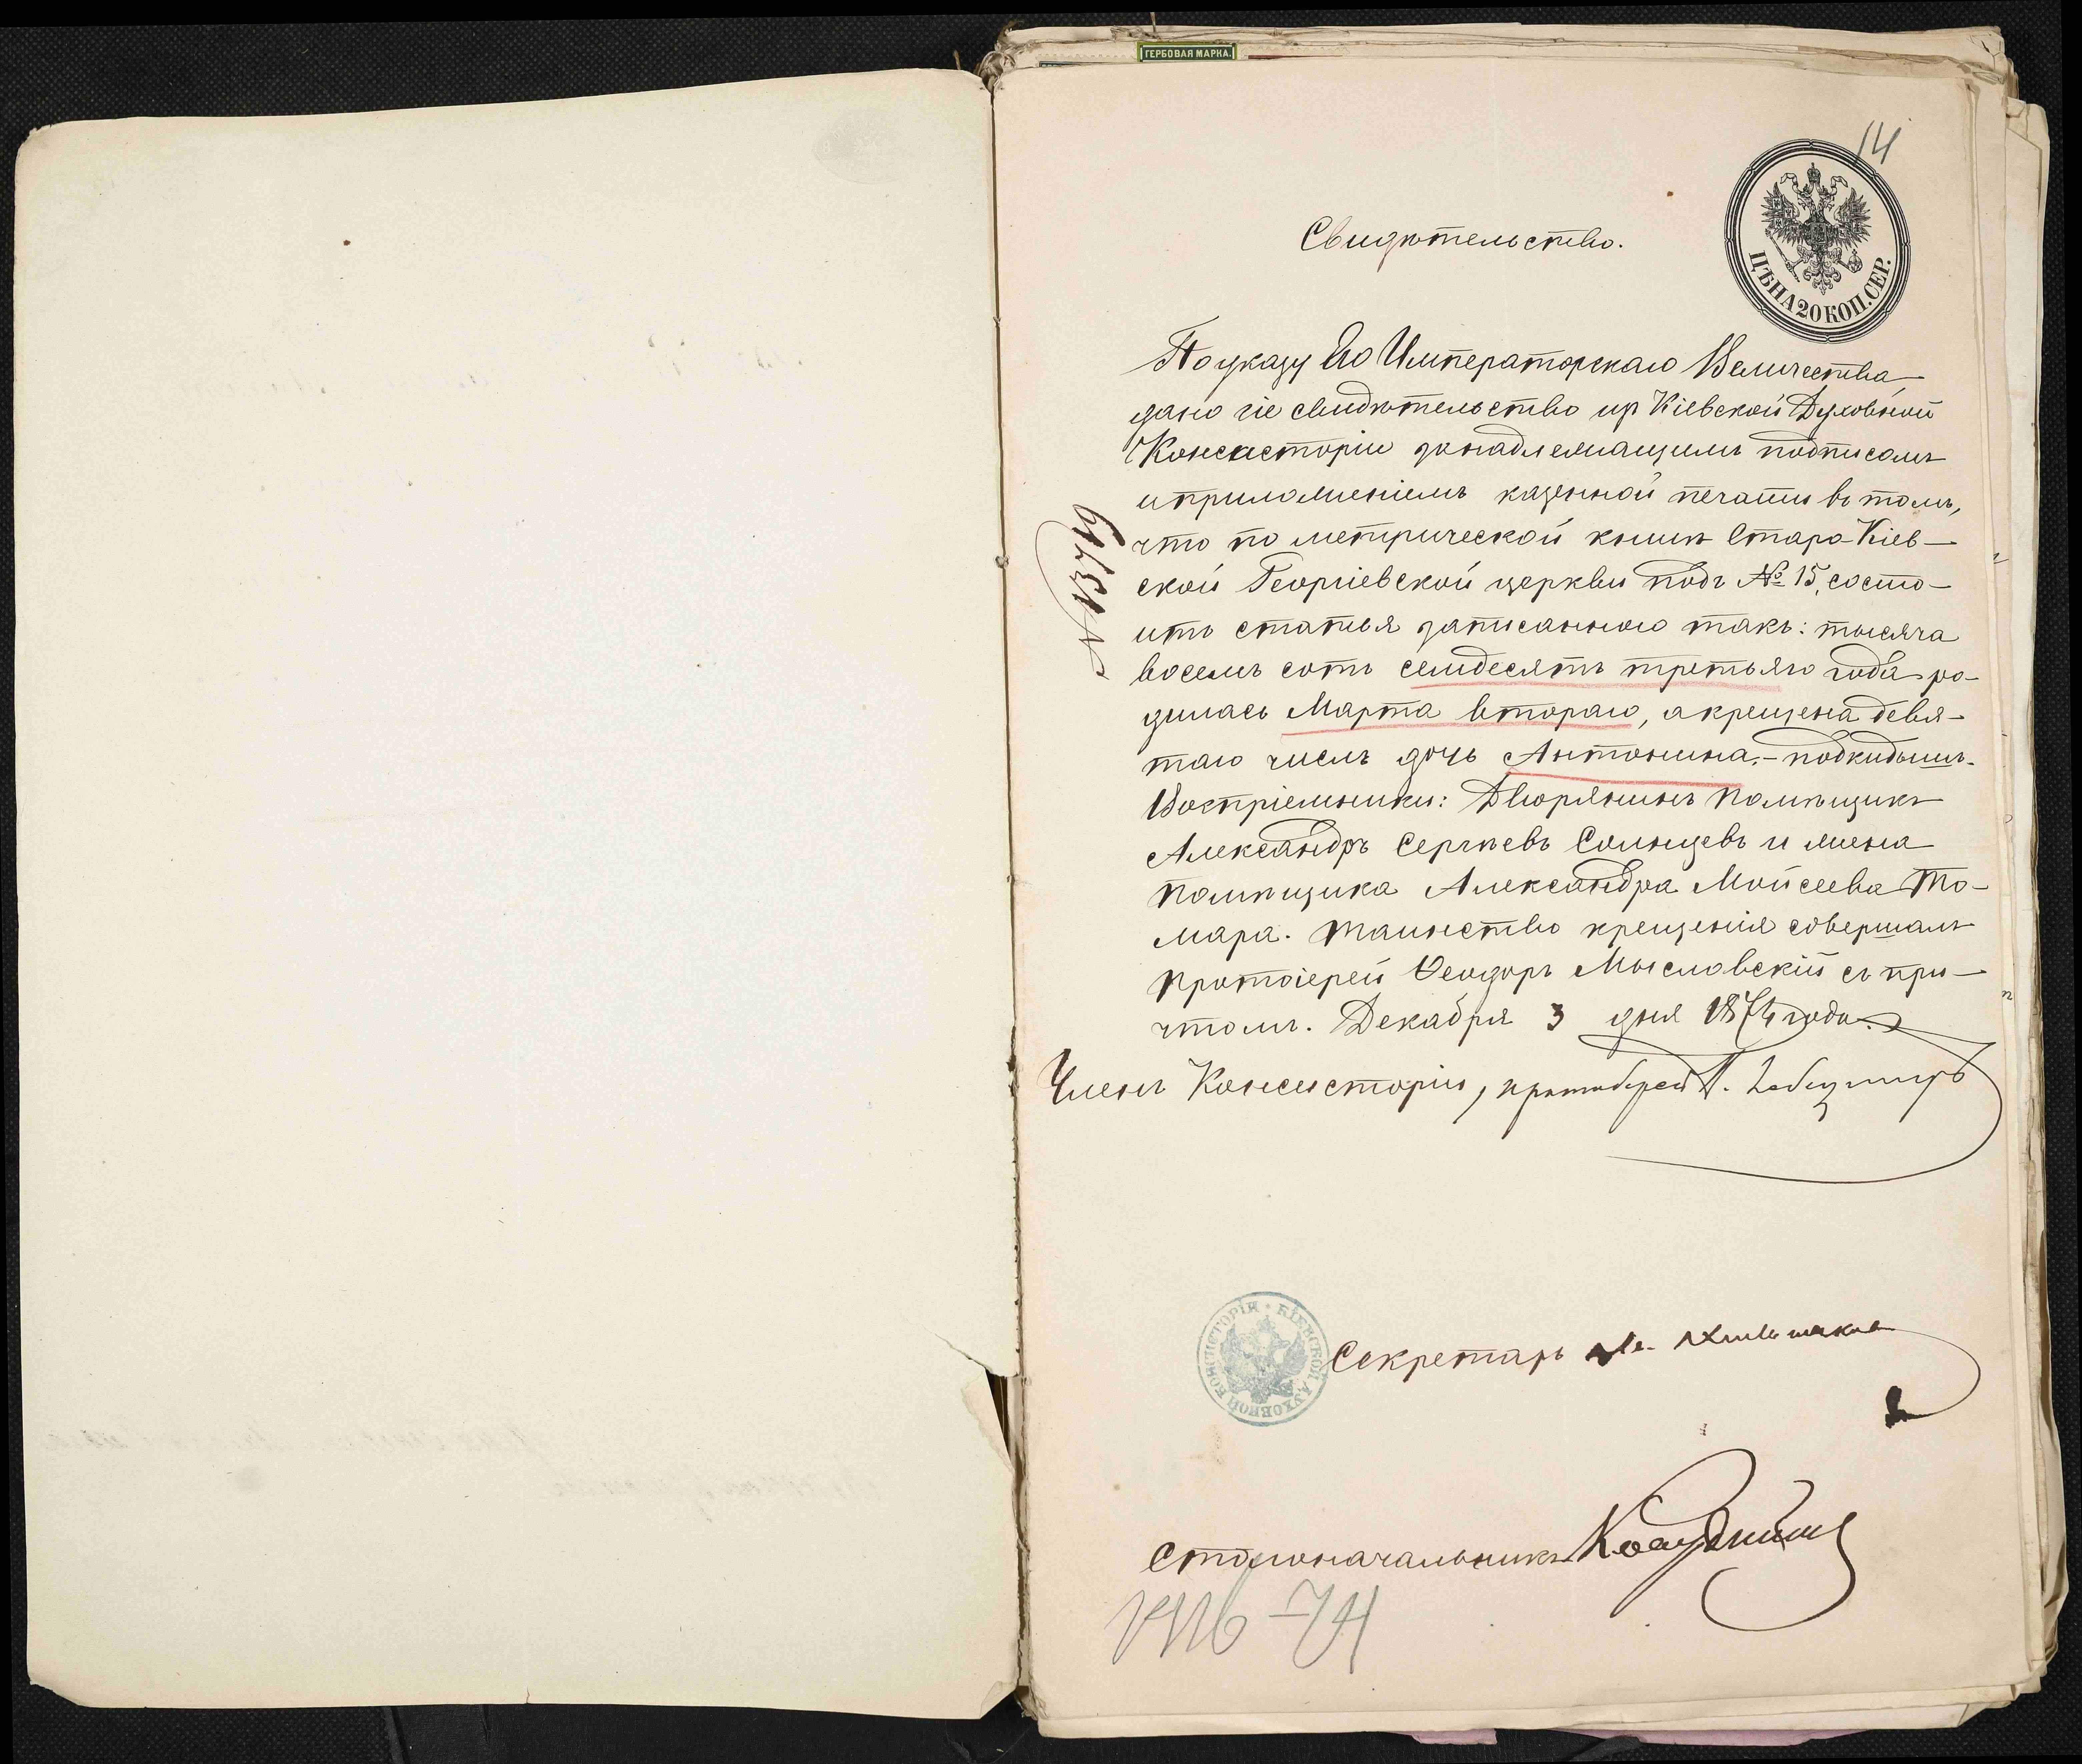 ГЕРБОВАЯ МАРКА.
14
ЦѢНА 20 КОП. СЕР.
Свидѣтельство.
По указу Его Императорскаго Величества
дано сіе свидѣтельство изъ Кіевской Духовной
Консисторіи за надлежащимъ подписомъ
и приложеніемъ казенной печати въ томъ,
что по метрической книгѣ Старо-Кіев-
ской Георгіевской церкви подъ № 15, состо-
итъ статья записанною такъ: тысяча
восемъ сотъ семдесятъ третьяго года ро-
дилась Марта втораго, а крещена девя-
таго числъ дочь Антонина, - подкидышъ.
Воспріемники: Дворянинъ Помѣщикъ
Александръ Сергѣевъ Солнцевъ и жена
помѣщика Александра Мойсеева То-
мара. Таинство крещенія совершалъ
Протоіерей Ѳеодоръ Мысловскій съ при-
чтомъ. Декабря 3 дня 1874 года.
Членъ Консисторіи, протоіерей П.
КІЕВСКОЙ ДУХОВНОЙ КОНСИСТОРІИ
Секретарь
Столоначальникъ